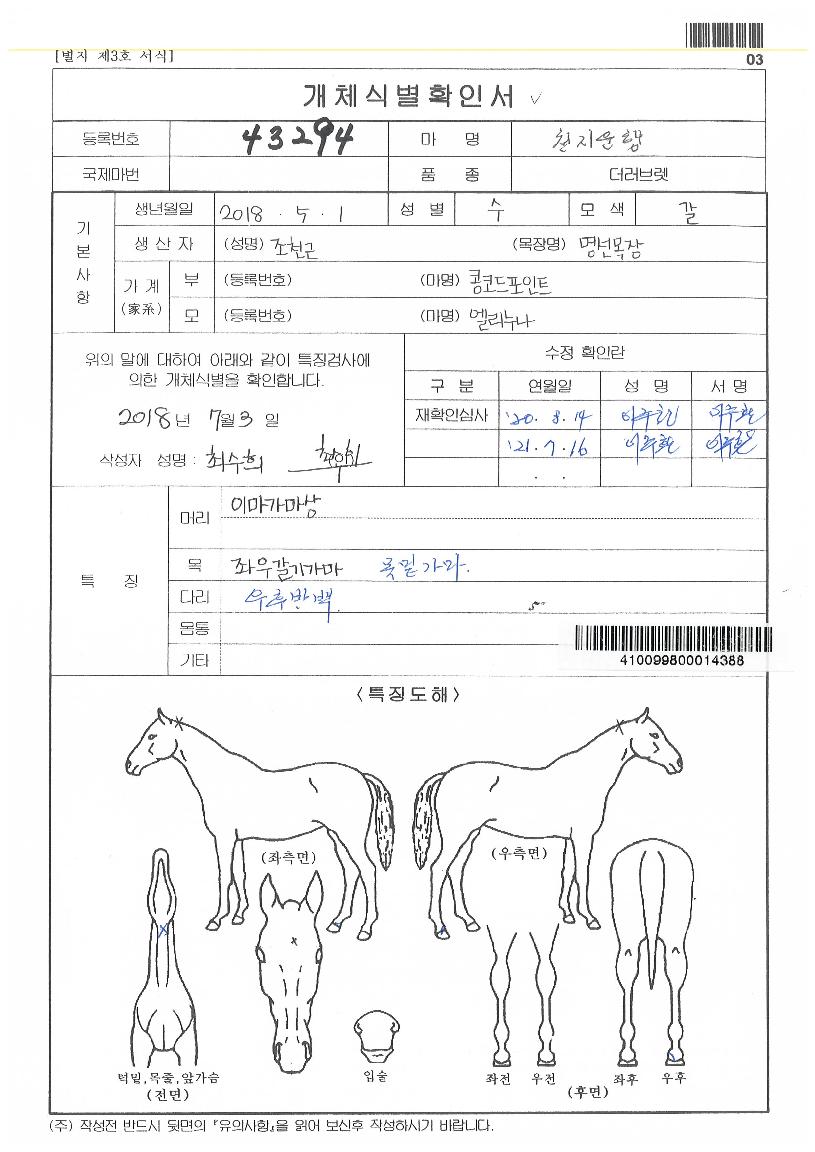 [별지 제3호 서식]
03
개체식별확인서 ✓
등록번호 43294 마 명 천지운행
국제마번 품 종 더러브렛
기본사항
생년월일 2018 . 5 . 1 성 별 수 모 색 갈
생 산 자 (성명) 조천근 (목장명) 명년목장
가 계 (家系)
부 (등록번호) (마명) 콩코드포인트
모 (등록번호) (마명) 엘리누나
위의 말에 대하여 아래와 같이 특징검사에
의한 개체식별을 확인합니다.
2018년 7월 3 일
작성자 성명 : 최수희
수정 확인란
구 분 연월일 성 명 서 명
재확인심사 '20. 8. 14
'21. 7. 16
. .
특 징
머리 이마가마상
목 좌우갈기가마 목밑가마.
다리 우후반백
몸통
기타
410099800014388
<특징도해>
(좌측면)
(우측면)
턱밑,목줄,앞가슴
(전면)
입술
좌전 우전
(후면)
좌후 우후
(주) 작성전 반드시 뒷면의 『유의사항』을 읽어 보신후 작성하시기 바랍니다.